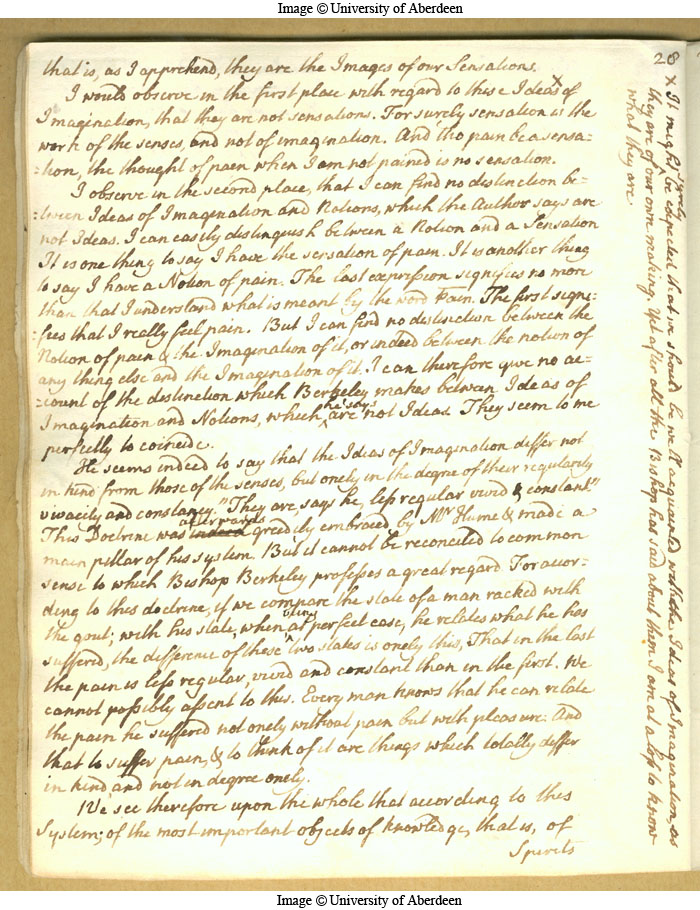 Image © University of Aberdeen
28
that is, as I apprehend, they are the Images of our Sensations.
I would observe in the first place with regard to these Ideas x of
Imagination, that they are not sensations. For surely sensation is the
work of the senses, and not of imagination. And tho pain be a sensa-
-tion, the thought of pain when I am not pained is no sensation.
I observe in the second place, that I can find no distinction be-
-tween Ideas of Imagination and Notions, which the Author says are
not Ideas. I can easily distinguish between a Notion and a Sensation
It is one thing to say I have the sensation of pain. It is another thing
to say I have a Notion of pain. The last expression signifies no more
than that I understand what is meant by the word Pain. The first signi-
-fies that I really feel pain. But I can find no distinction between the
Notion of pain & the Imagination of it, or indeed between the notion of
any thing else and the Imagination of it. I can therefore give no ac-
-count of the distinction which Berkeley makes between Ideas of
Imagination and Notions, which he says are not Ideas. They seem to me
perfectly to coincide.
He seems indeed to say that the Ideas of Imagination differ not
in kind from those of the senses, but onely in the degree of their regularity
vivacity and constancy. "They are, says he, less regular vivid & constant"
This Doctrine was indeed afterwards greedily embraced by Mr Hume & made a
main pillar of his system. But it cannot be reconciled to common
sense to which Bishop Berkeley professes a great regard For accor-
ding to this doctrine, if we compare the state of a man racked with
the gout; with his state, when being at perfect ease, he relates what he has
suffered, the difference of these two states is onely this, That in the last
the pain is less regular, vivid and constant than in the first. We
cannot possibly assent to this. Every man knows that he can relate
the pain he suffered not onely without pain but with pleasure: And
that to suffer pain, & to think of it are things which totally differ
in kind, and not in degree onely.
We see therefore upon the whole that according to this
System; of the most important objects of knowledge, that is, of
Spirits
x It might surely be expected that we should be well acquainted with the Ideas of Imagination, as
they are of our own making. Yet after all the Bishop has said about them I am at a loss to know
what they are
Image © University of Aberdeen